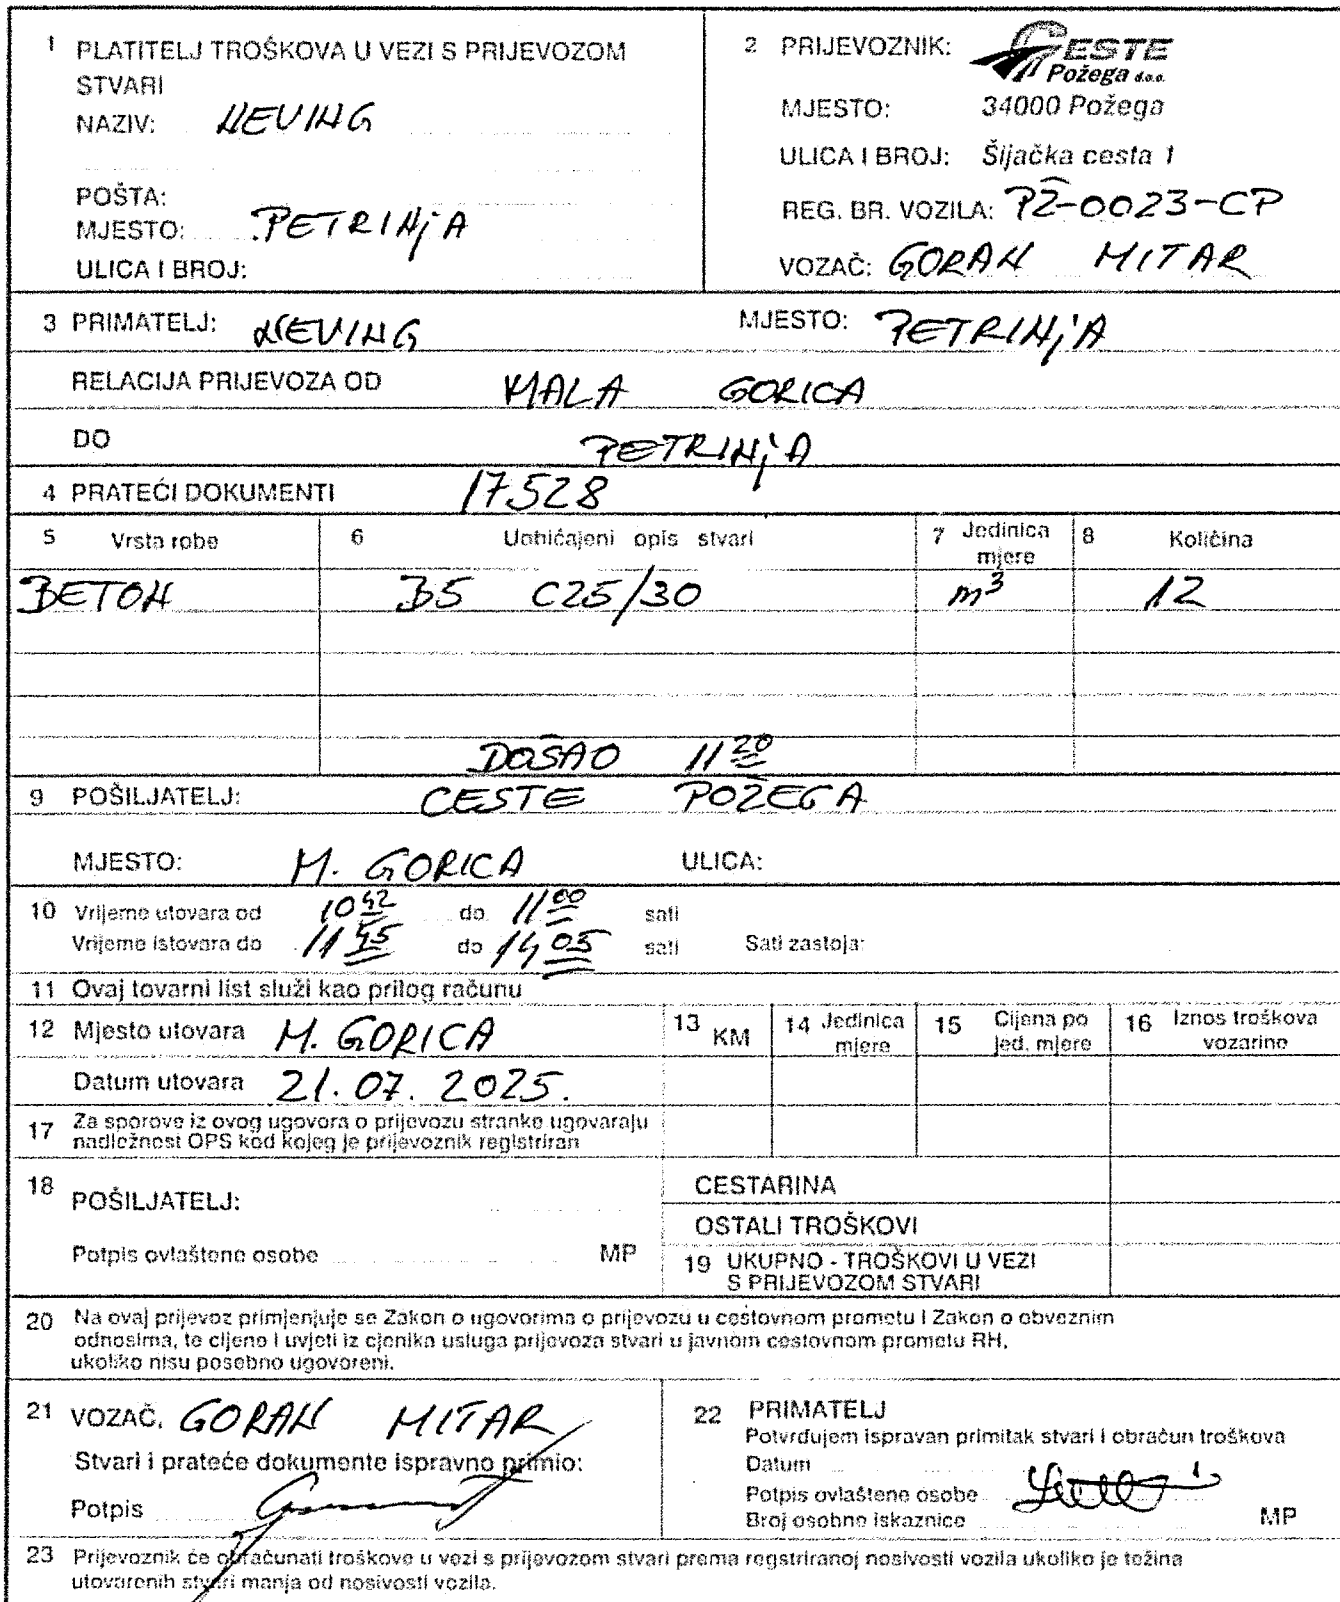 1 PLATITELJ TROŠKOVA U VEZI S PRIJEVOZOM
STVARI
NAZIV: NEVING
POŠTA:
MJESTO: PETRINjA
ULICA I BROJ:
2 PRIJEVOZNIK: CESTE
Požega d.o.o.
MJESTO: 34000 Požega
ULICA I BROJ: Šijačka cesta 1
REG. BR. VOZILA: PŽ-0023-CP
VOZAČ: GORAN MITAR
3 PRIMATELJ: NEVING MJESTO: PETRINjA
RELACIJA PRIJEVOZA OD MALA GORICA
DO PETRINjA
4 PRATEĆI DOKUMENTI 17528
5 Vrsta robe 6 Uobičajeni opis stvari 7 Jedinica mjere 8 Količina
BETON B5 C25/30 m³ 12
DOŠAO 11 20
9 POŠILJATELJ: CESTE POŽEGA
MJESTO: M. GORICA ULICA:
10 Vrijeme utovara od 10 42 do 11 00 sati
Vrijeme istovara do 11 45 do 14 05 sati Sati zastoja:
11 Ovaj tovarni list služi kao prilog računu
12 Mjesto utovara M. GORICA 13 KM 14 Jedinica mjere 15 Cijena po jed. mjere 16 Iznos troškova vozarine
Datum utovara 21.07.2025.
17 Za sporove iz ovog ugovora o prijevozu stranke ugovaraju
nadležnost OPS kod kojeg je prijevoznik registriran
18 POŠILJATELJ:
Potpis ovlaštene osobe MP
CESTARINA
OSTALI TROŠKOVI
19 UKUPNO - TROŠKOVI U VEZI
S PRIJEVOZOM STVARI
20 Na ovaj prijevoz primjenjuje se Zakon o ugovorima o prijevozu u cestovnom prometu i Zakon o obveznim
odnosima, te cijene i uvjeti iz cjenika usluga prijevoza stvari u javnom cestovnom prometu RH,
ukoliko nisu posebno ugovoreni.
21 VOZAČ, GORAN MITAR
Stvari i prateće dokumente ispravno primio:
Potpis
22 PRIMATELJ
Potvrđujem ispravan primitak stvari i obračun troškova
Datum
Potpis ovlaštene osobe
Broj osobne iskaznice MP
23 Prijevoznik će obračunati troškove u vezi s prijevozom stvari prema regstriranoj nosivosti vozila ukoliko je težina
utovarenih stvari manja od nosivosti vozila.